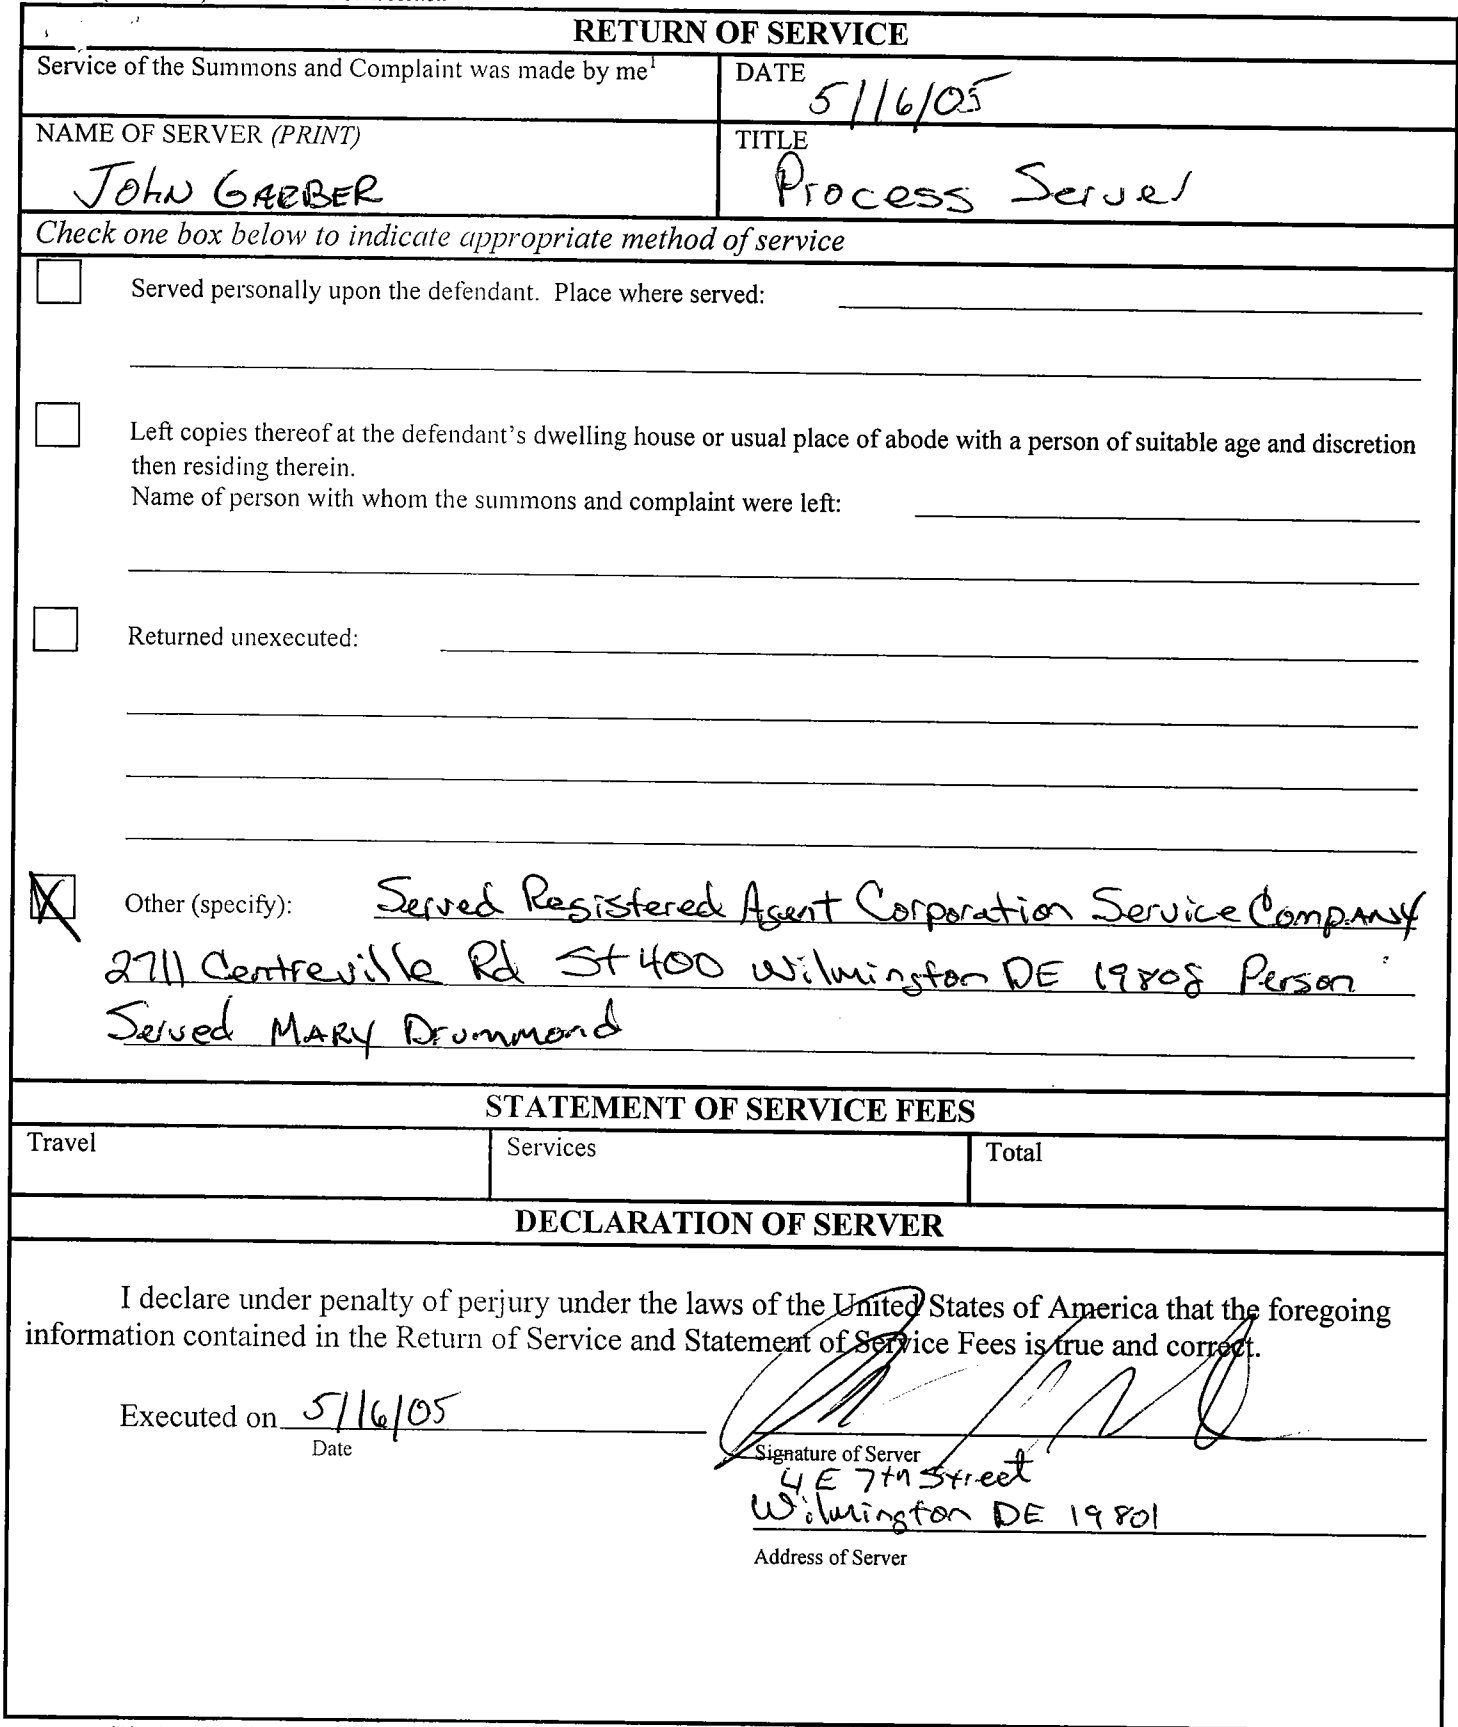 RETURN OF SERVICE
Service of the Summons and Complaint was made by me1
DATE
5/16/05
NAME OF SERVER (PRINT)
JOHN GARBER
TITLE
Process Server
Check one box below to indicate appropriate method of service
Served personally upon the defendant. Place where served:
Left copies thereof at the defendant's dwelling house or usual place of abode with a person of suitable age and discretion
then residing therein.
Name of person with whom the summons and complaint were left:
Returned unexecuted:
Other (specify): Served Registered Agent Corporation Service Company
2711 Centreville Rd St 400 Wilmington DE 19808 Person
Served MARY Drummond
STATEMENT OF SERVICE FEES
Travel
Services
Total
DECLARATION OF SERVER
I declare under penalty of perjury under the laws of the United States of America that the foregoing
information contained in the Return of Service and Statement of Service Fees is true and correct.
Executed on 5/16/05
Date
Signature of Server
4 E 7th Street
Wilmington DE 19801
Address of Server